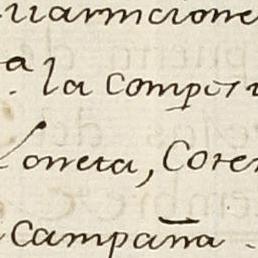 uarnicione
a la compet
Loneta, Coten
campaña.